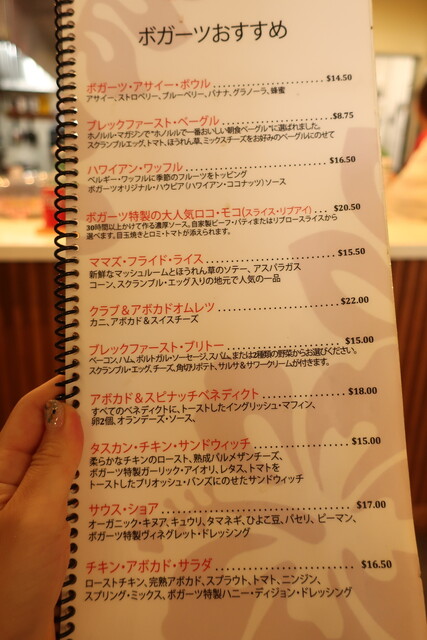 ボガーツおすすめ
ボガーツ・アサイー・ボウル ........................ $14.50
アサイー、ストロベリー、ブルーベリー、バナナ、グラノーラ、蜂蜜
ブレックファースト・ベーグル ........................ $8.75
ホノルル・マガジンで"ホノルルで一番おいしい朝食ベーグル"に選ばれました。
スクランブルエッグ、トマト、ほうれん草、ミックスチーズをお好みのベーグルにのせて
ハワイアン・ワッフル ........................ $16.50
ベルギー・ワッフルに季節のフルーツをトッピング
ボガーツオリジナル・ハウピア（ハワイアン・ココナッツ）ソース
ボガーツ特製の大人気ロコ・モコ（スライス・リブアイ）... $20.50
30時間以上かけて作る濃厚ソース。自家製ビーフ・パティまたはリブロースライスから
選べます。目玉焼きとロミ・トマトが添えられます。
ママズ・フライド・ライス ........................ $15.50
新鮮なマッシュルームとほうれん草のソテー、アスパラガス
コーン、スクランブル・エッグ入りの地元で人気の一品
クラブ＆アボカドオムレツ ........................ $22.00
カニ、アボカド＆スイスチーズ
ブレックファースト・ブリトー ........................ $15.00
ベーコン、ハム、ポルトガル・ソーセージ、スパム、または2種類の野菜からお選びください。
スクランブル・エッグ、チーズ、角切りポテト、サルサ＆サワークリームが付きます。
アボカド＆スピナッチベネディクト ........................ $18.00
すべてのベネディクトに、トーストしたイングリッシュ・マフィン、
卵2個、オランデーズ・ソース、
タスカン・チキン・サンドウィッチ ........................ $15.00
柔らかなチキンのロースト、熟成パルメザンチーズ、
ボガーツ特製ガーリック・アイオリ、レタス、トマトを
トーストしたブリオッシュ・バンズにのせたサンドウィッチ
サウス・ショア ........................ $17.00
オーガニック・キヌア、キュウリ、タマネギ、ひよこ豆、パセリ、ピーマン、
ボガーツ特製ヴィネグレット・ドレッシング
チキン・アボカド・サラダ ........................ $16.50
ローストチキン、完熟アボカド、スプラウト、トマト、ニンジン、
スプリング・ミックス、ボガーツ特製ハニー・ディジョン・ドレッシング